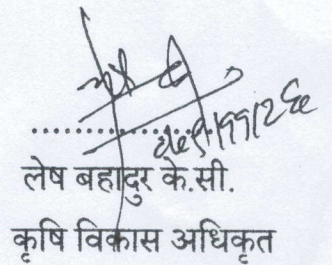 ..................
लेष बहादुर के.सी.
कृषि विकास अधिकृत